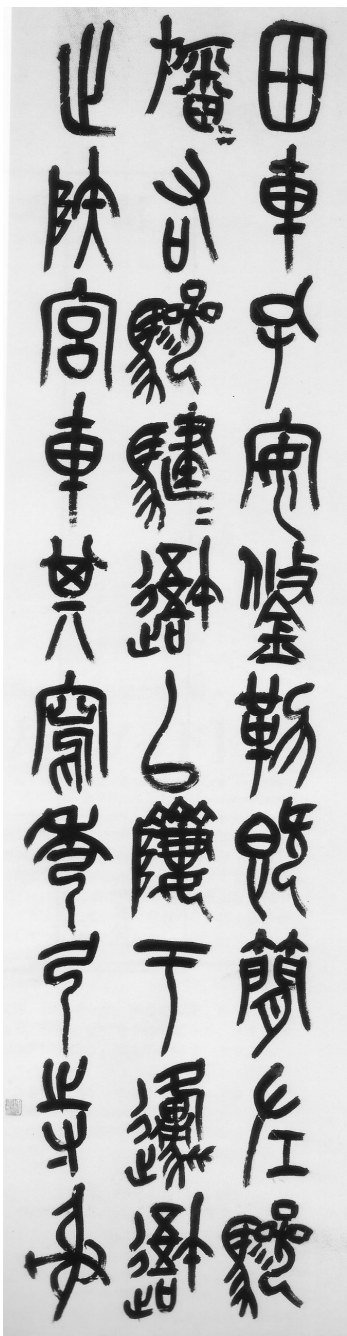 田車孔安鋚勒既簡左驂
旛〻右驂騝〻吾以隮于邍吾
止陕宮車其寫秀弓寺射